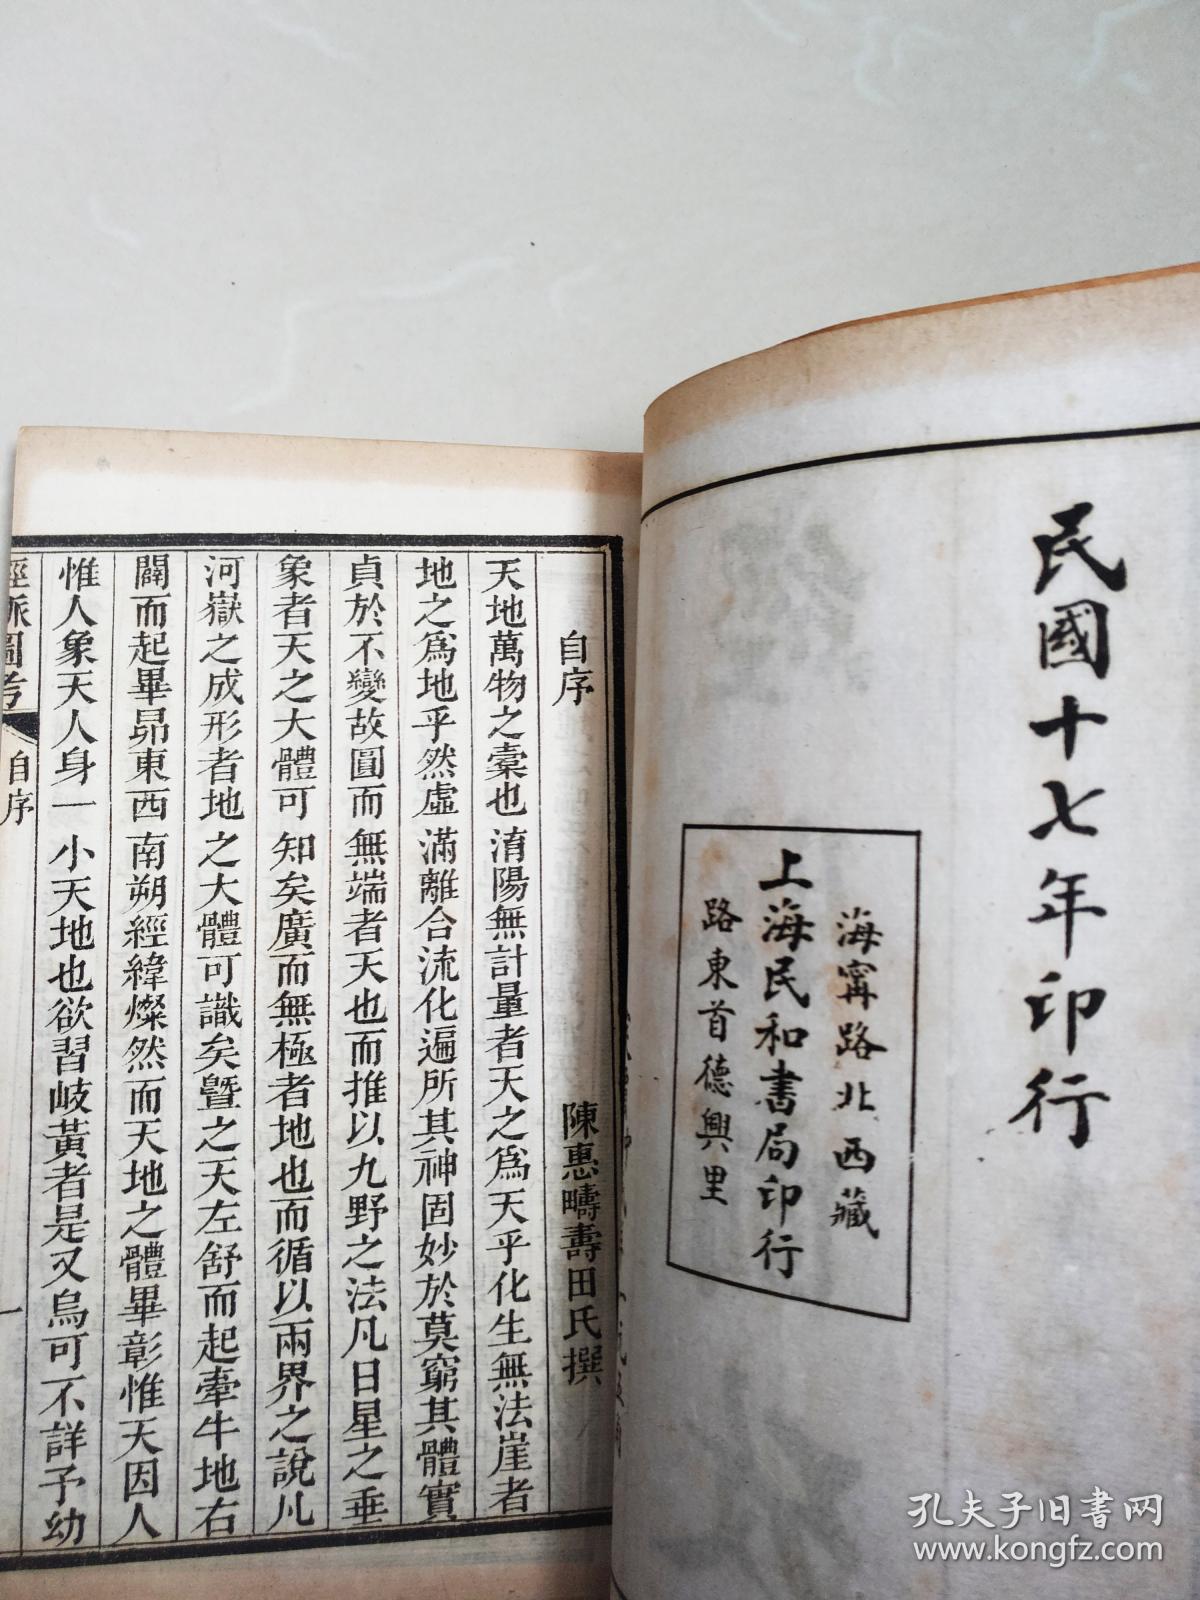 民國十七年印行
海甯路北西藏
上海民和書局印行
路東首德興里
自序
陳惠疇壽田氏撰
天地萬物之橐也淯陽無計量者天之爲天乎化生無法崖者
地之爲地乎然虛滿離合流化遍所其神固妙於莫窮其體實
貞於不變故圓而無端者天也而推以九野之法凡日星之垂
象者天之大體可知矣廣而無極者地也而循以兩界之說凡
河嶽之成形者地之大體可識矣曁之天左舒而起牽牛地右
闢而起畢昴東西南朔經緯燦然而天地之體畢彰惟天因人
惟人象天人身一小天地也欲習岐黃者是又烏可不詳予幼
經脈圖考
自序
一
孔夫子旧书网
www.kongfz.com